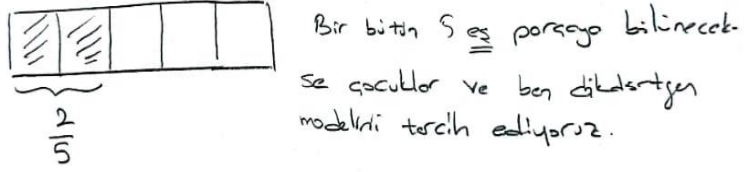 Bir bütün 5 eş parçaya bölünecek-
se çocuklar ve ben dikdörtgen
modelini tercih ediyoruz.
2
5